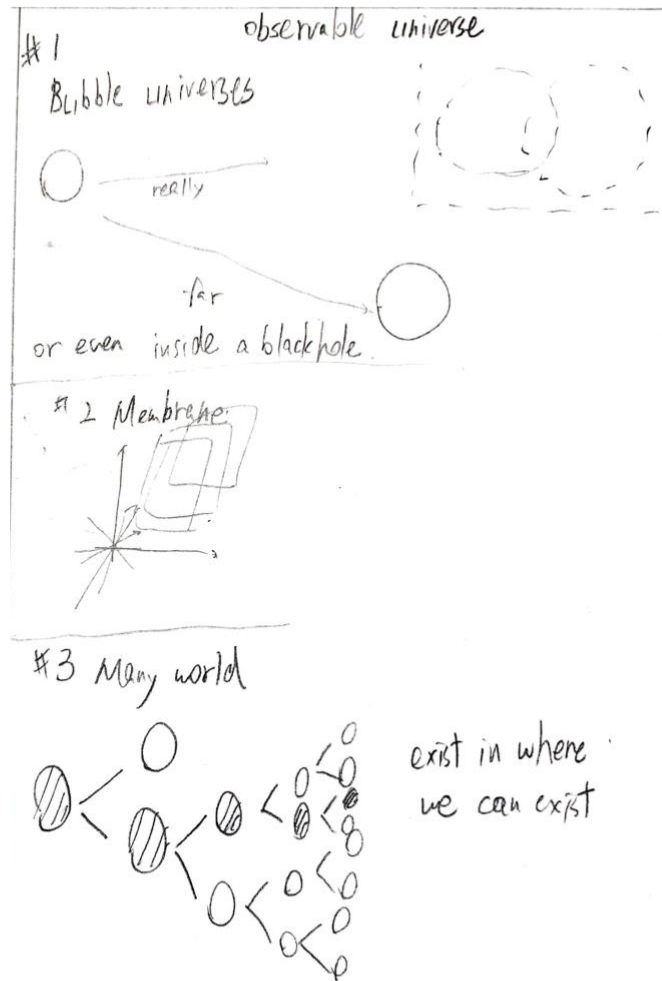 observable universe
#1
Bubble universes
really
far
or even inside a blackhole.
#2 Membrane.
#3 Many world
exist in where
we can exist